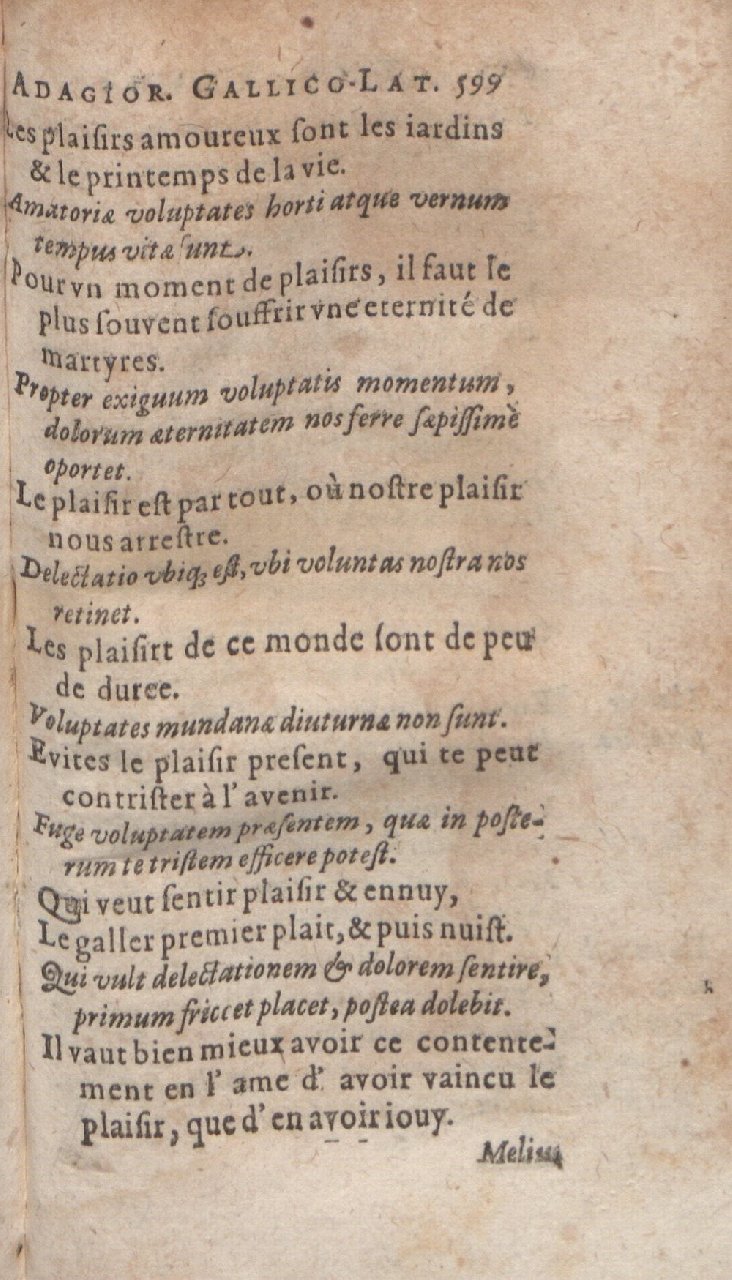 ADAGIOR. GALLICO-LAT. 599
Les plaiſirs amoureux ſont les iardins
& le printemps de la vie.
Amatoriæ voluptates horti atque vernum
tempus vitæ ſunt.
Pour vn moment de plaiſirs, il faut le
plus ſouvent ſouffrir vne eternité de
martyres.
Propter exiguum voluptatis momentum,
dolorum æternitatem nos ferre ſæpiſſimè
oportet.
Le plaiſir eſt par tout, où noſtre plaiſir
nous arreſtre.
Delectatio vbiq; eſt, vbi voluntas noſtra nos
retinet.
Les plaiſirt de ce monde ſont de peu
de duree.
Voluptates mundanæ diuturnæ non ſunt.
Evites le plaiſir preſent, qui te peut
contriſter à l'avenir.
Fuge voluptatem præſentem, quæ in poſte-
rum te triſtem efficere poteſt.
Qui veut ſentir plaiſir & ennuy,
Le galler premier plait, & puis nuiſt.
Qui vult delectationem & dolorem ſentire,
primum friccet placet, poſtea dolebit.
Il vaut bien mieux avoir ce contente-
ment en l' ame d' avoir vaincu le
plaiſir, que d' en avoir iouy.
Melius